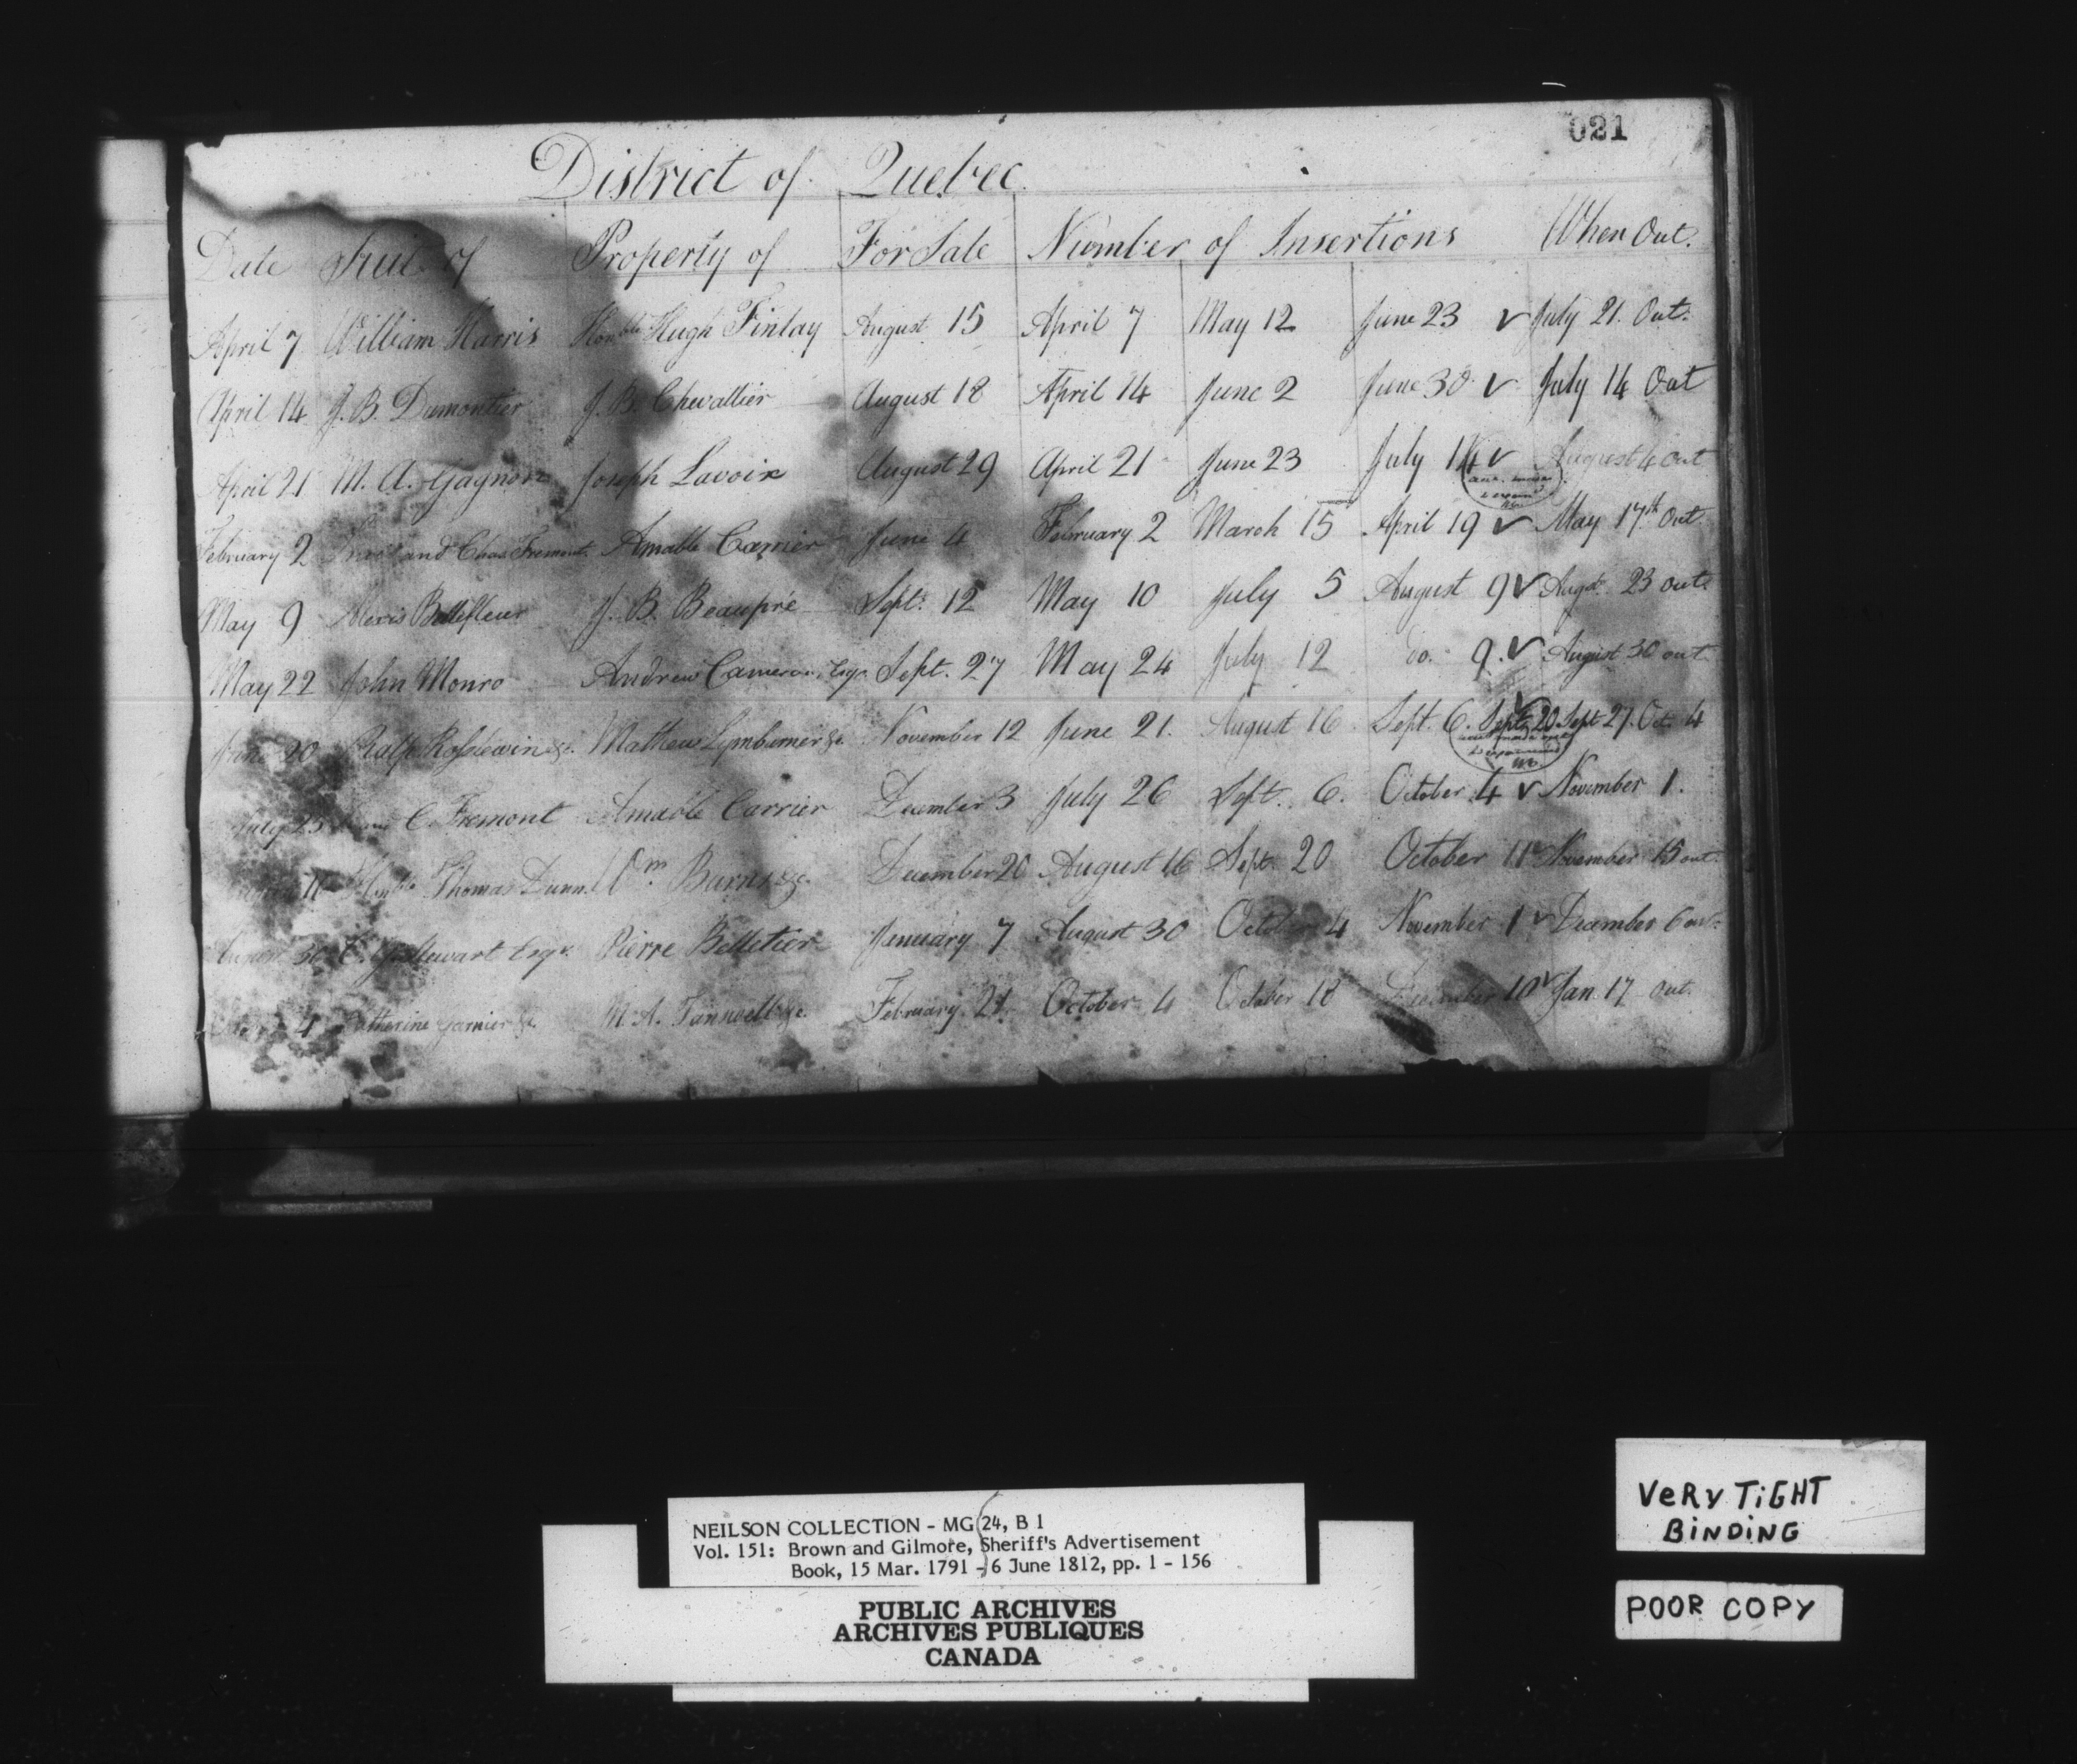 021
District of Quebec.
Date Suit of Property of For Sale Number of Insertions When Out.
April 7 William Harris Honble Hugh Finlay August 15 April 7 May 12 June 23 ✓ July 21. Out.
April 14 J. B. Dumontier J. B. Chevallier August 18 April 14 June 2 June 30 ✓ July 14 Out
April 21 M. A. Gagnon Joseph Lavoix August 29 April 21 June 23 July 14 ✓ August 4 out
February 2 and Chas Fremont Amable Carrier June 4 February 2 March 15 April 19 ✓ May 17th Out
May 9 Alexis Bellefleur J. B. Beaupré Sept. 12 May 10 July 5 August 9 ✓ Augt. 23 out
May 22 John Monro Andrew Cameron, Esqr. Sept. 27 May 24 July 12 do. 9. ✓ August 30 out
June 20 Ralph &c. Mathew Lymburner &c. November 12 June 21. August 16 Sept. 6. Sept. 20 Sept 27. Oct. 4
July 25 C. Fremont Amable Carrier December 3 July 26 Sept. 6. October 4 ✓ November 1.
11 Honble Thomas Dunn Wm. Burns &c. December 20 August 16 Sept. 20 October 11 November 15 out
August 30 Stewart Esqr. Pierre Pelletier January 7 August 30 October 4 November 1 ✓ December 6 out
4 Catherine Garnier &c. M. A. &c. February 21 October 4 October 18 December 10 ✓ Jan 17 out.
VERY TIGHT
BINDING
NEILSON COLLECTION - MG 24, B 1
Vol. 151: Brown and Gilmore, Sheriff's Advertisement
Book, 15 Mar. 1791 - 6 June 1812, pp. 1 - 156
POOR COPY
PUBLIC ARCHIVES
ARCHIVES PUBLIQUES
CANADA